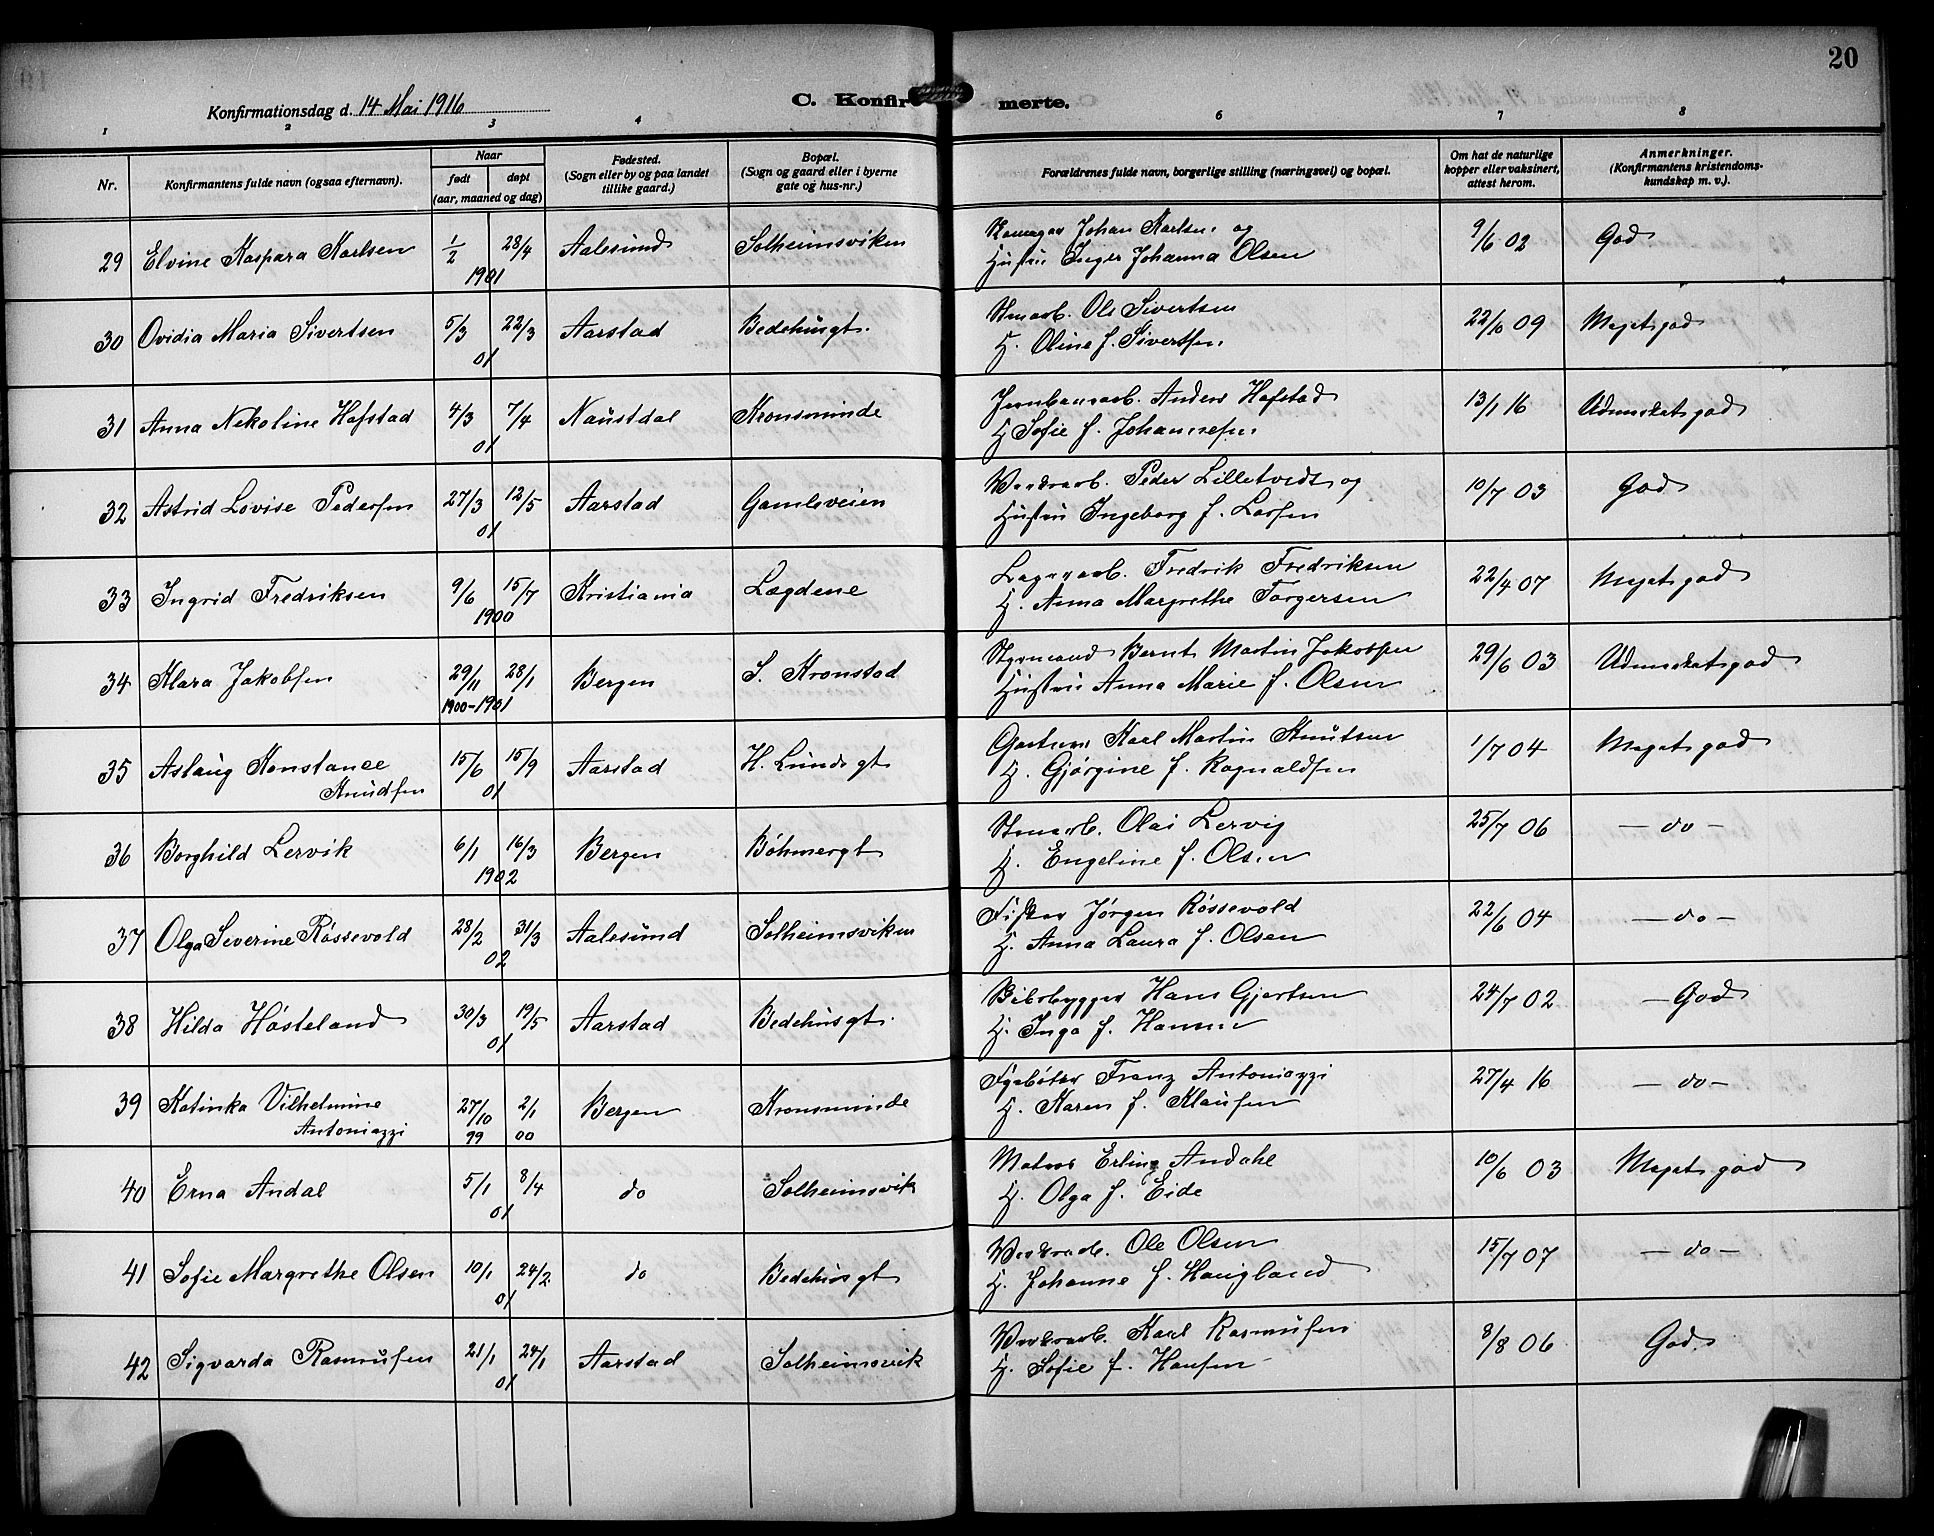 20
Konfirmationsdag d. 14 Mai 1916
C. Konfirmerte.
1 2 3 4 6 7 8
Nr.
Konfirmantens fulde navn (ogsaa efternavn).
Naar
født
døpt
(aar, maaned og dag)
Fødested.
(Sogn eller by og paa landet
tillike gaard.)
Bopæl.
(Sogn og gaard eller i byerne
gate og hus-nr.)
Forældrenes fulde navn, borgerlige stilling (næringsvei) og bopæl.
Om hat de naturlige
kopper eller vaksinert,
attest herom.
Anmerkninger.
(Konfirmantens kristendoms-
kundskap m. v.)
29 Elvine Kaspara Karlsen 1/2 28/4 1901 Aalesund Solheimsviken
Johan Karlsen og
Hustru Inger Johanna Olsen
9/6 02 God
30 Ovidia Maria Sivertsen 5/3 22/3 01 Aarstad Bedehusgt.
Ole Sivertsen
H. Oline f. Sivertsen
22/6 09 Megetgod
31 Anna Nekoline Hafstad 4/3 7/4 01 Naustdal Kronsminde
Jernbanearb. Anders Hafstad
H Sofie f. Johannesen
13/1 16 Udmerketgod
32 Astrid Lovise Pedersen 27/3 12/5 01 Aarstad Gamleveien
Verksarb. Peder Lilletvedt og
Hustru Ingeborg f. Larsen
10/7 03 God
33 Ingrid Fredriksen 9/6 15/7 1900 Kristiania Lægdene
Lagerarb. Fredrik Fredriksen
H. Anna Margrethe Torgersen
22/4 07 Megetgod
34 Klara Jakobsen 29/11 28/1 1900-1901 Bergen S. Kronstad
Styrmand Bernt Martin Jakobsen
Hustru Anna Marie f. Olsen
29/6 03 Udmerketgod
35 Aslaug Konstance
Knudsen 15/6 15/9 01 Aarstad H. Lunds gt
Gartner Karl Martin Knutsen
H. Gjørgine f. Ragnvaldsen
1/7 04 Megetgod
36 Borghild Lervik 6/1 16/3 1902 Bergen Bøhmergt
Olai Lervig
H. Engeline f. Olsen
25/7 06 — do —
37 Olga Severine Røssevold 28/2 31/3 02 Aalesund Solheimsviken
Fisker Jørgen Røssevold
H. Anna Laura f. Olsen
22/6 04 — do —
38 Hilda Høsteland 30/3 19/5 01 Aarstad Bedehusgt.
Baatbygger Hans Gjertsen
H. Inga f. Hansen
24/7 02 — God
39 Katinka Vilhelmine
Antoniazzi 27/10 99 2/1 00 Bergen Kronsminde
Franz Antoniazzi
H. Karen f. Klausen
27/4 16 — do —
40 Erna Andal 5/1 8/4 01 do Solheimsvik
Erling Andahl
H. Olga f. Eide
10/6 03 Megetgod
41 Sofie Margrethe Olsen 10/1 24/2 01 do Bedehusgt
Verksarb. Ole Olsen
H. Johanne f. Haugland
15/7 07 — do —
42 Sigvarda Rasmusen 21/1 24/1 01 Aarstad Solheimsvik
Verksarb. Karl Rasmusen
H. Sofie f. Hansen
8/8 06 God